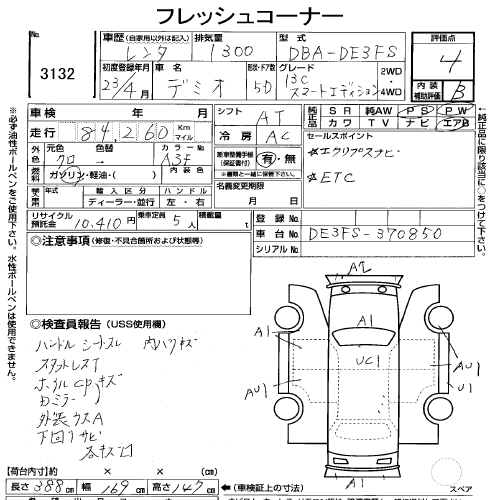 フレッシュコーナー
No. 3132
車歴 (自家用以外は記入) レンタ
排気量 1300
型式 DBA-DE3FS
評価点 4
初度登録年月 23/4月
車名 デミオ
形状・ドア数 5D
グレード 13C スマートエディション
2WD・4WD
内装補助評価 B
車検 年 月
シフト AT
純正品 SR 純AW PS PW
カワ TV ナビ エアB
走行 84,260 Km マイル
冷房 AC
セールスポイント
外色 元色 クロ 色替 カラーNo A3F
☆エクリプスナビ
燃料 ガソリン・軽油・( ) 内装色
車輌整備手帳(保証書付) 有・無
※書類と一緒に保管下さい。
☆ETC
輸入車 年式 輸入区分 ハンドル
ディーラー・並行 左・右
名義変更期限 月 日
リサイクル預託金 10,410円
乗車定員 5人
積載量 t
登録No.
車台No. DE3FS-370850
シリアルNo.
◎注意事項 (修復・不具合箇所および状態等)
※必ず油性ボールペンをご使用下さい。水性ボールペンは使用できません。
←純正品に限り該当に○をつけて下さい。
◎検査員報告 (USS使用欄)
ハンドル シートスレ 内ハリキズ
スタットレスT
ホイルCPキズ
Dミラー
外装ウスA
下回りサビ
各キズ凹
A2
A1
A1
A1
UC1
AU1
AU1
U1
A1
スペア
【荷台内寸】 × × (cm)
長さ 388cm 幅 169cm 高さ 147cm
←(車検証上の寸法)